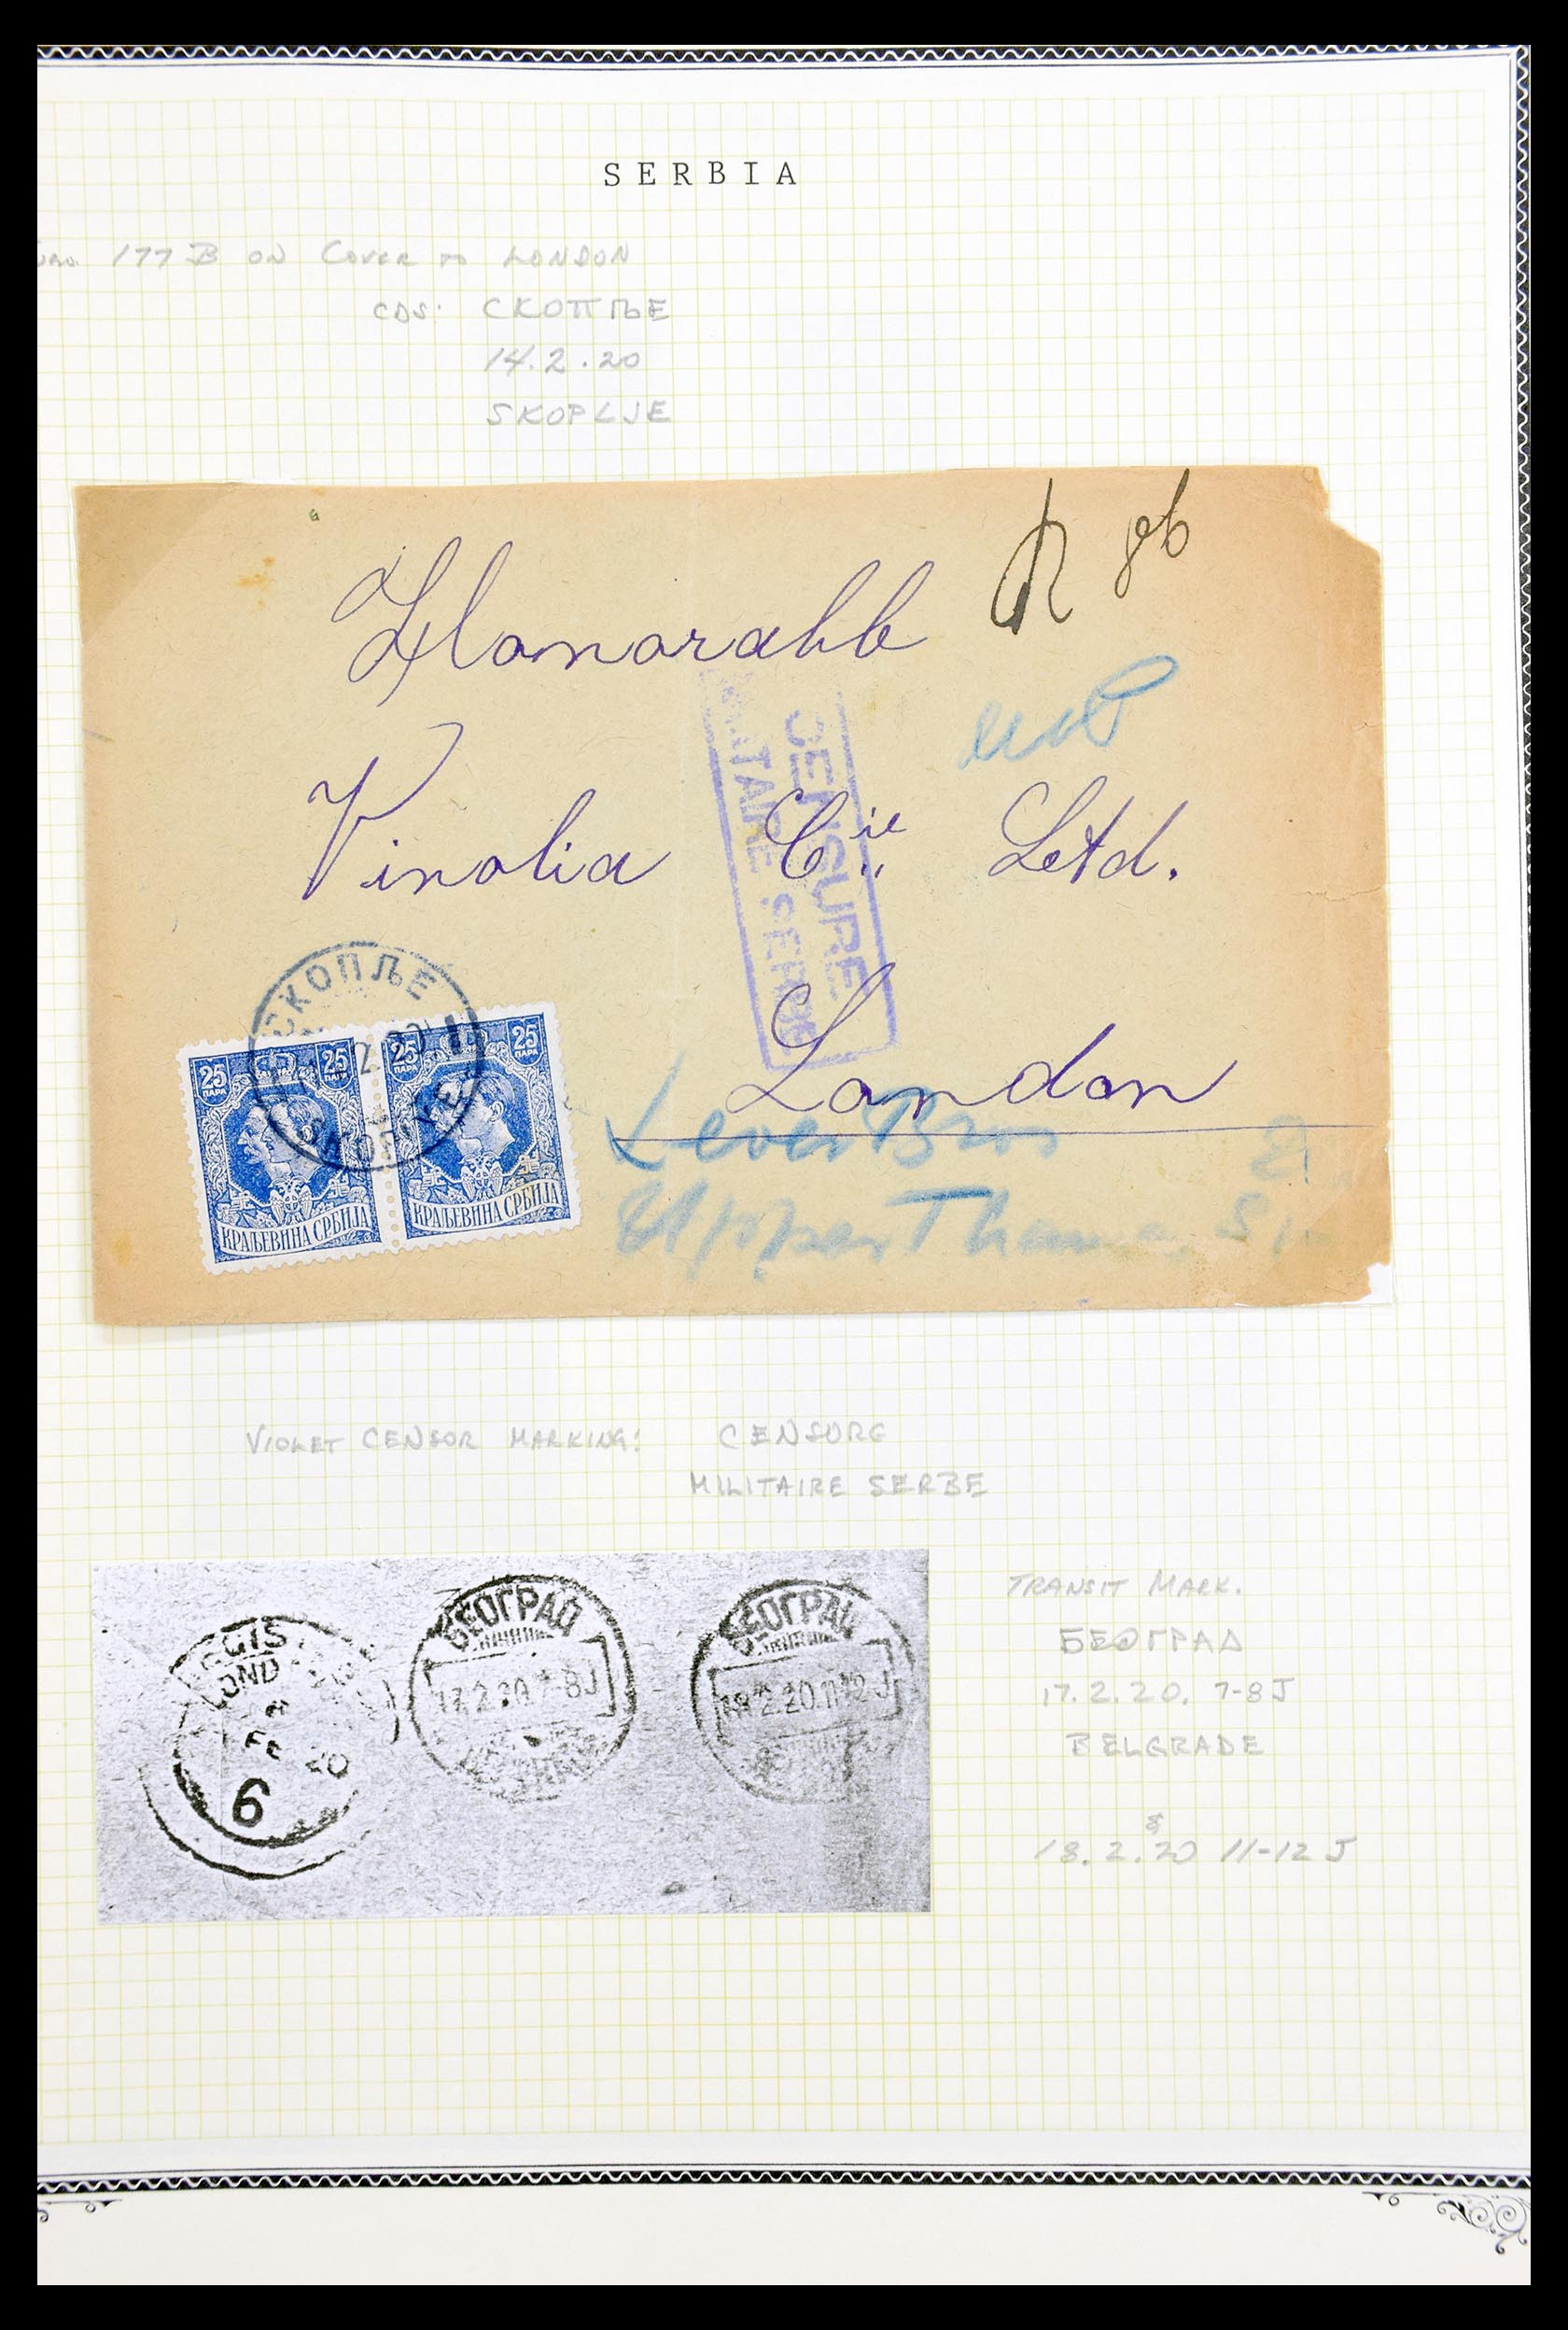 SERBIA
177 B ON COVER TO LONDON
CDS: СКОПЉЕ
14.2.20
SKOPLJE
R
Honorable
Vinolia Cie Letd.
London
CENSURE
MILITAIRE SERBE
СКОПЉЕ
25 ПАРА 25 ПАРА
КРАЉЕВИНА СРБИЈА
25 ПАРА 25 ПАРА
КРАЉЕВИНА СРБИЈА
Lever Bros
Upper Thames
VIOLET CENSOR MARKING: CENSURE
MILITAIRE SERBE
6
БЕОГРАД
17.2.20.7-8J
БЕОГРАД
18.2.20.11-12J
TRANSIT MARK.
БЕОГРАД
17.2.20. 7-8 J
BELGRADE
&
18.2.20 11-12 J